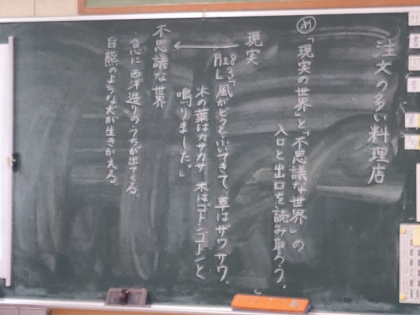 注文の多い料理店
め 「現実の世界」と「不思議な世界」の
入口と出口を読み取ろう。
現実
P128 L3「風がどうとふいてきて、草はザワザワ、
木の葉はカサカサ、木はゴトンゴトンと
鳴りました。」
不思議な世界
急に西洋造りのうちが出てくる。
白熊のような犬が生きかえる。